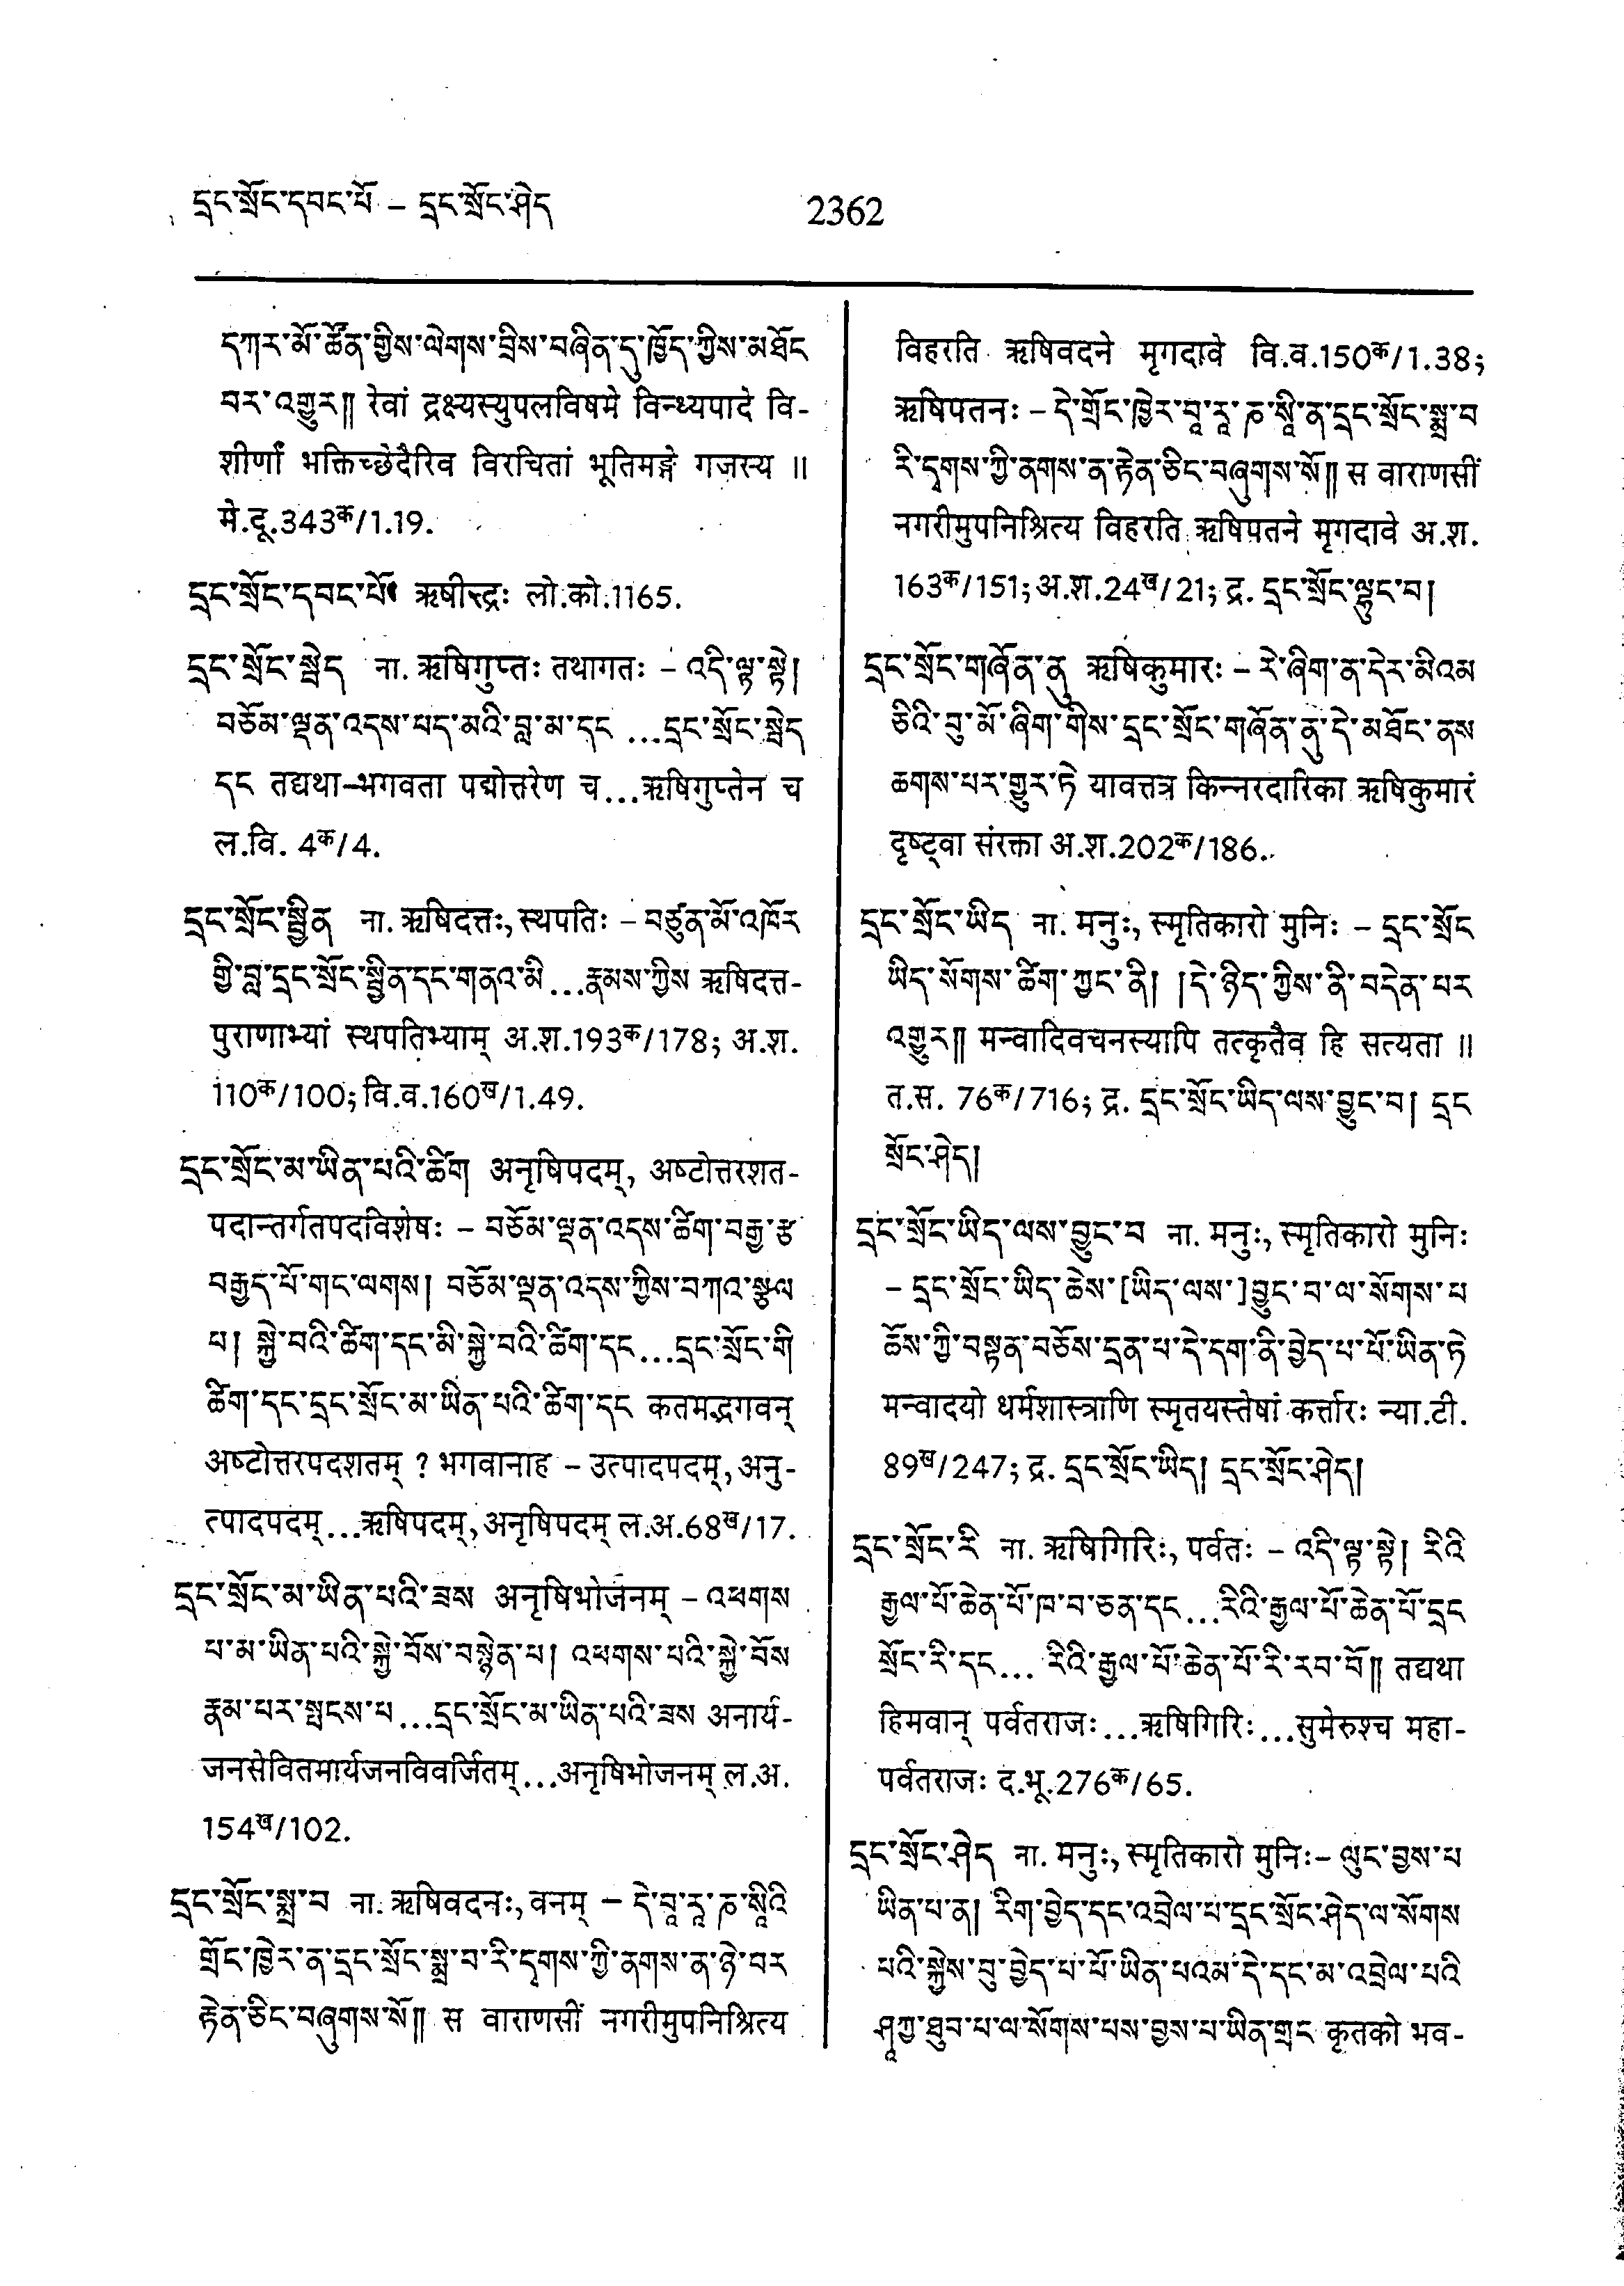 དྲང་སྲོང་དབང་པོ – དྲང་སྲོང་ཤེད
2362
དཀར་མོ་ཚོན་གྱིས་ལེགས་བྲིས་བཞིན་དུ་ཁྱོད་ཀྱིས་མཐོང
བར་འགྱུར༎ रेवां द्रक्ष्यस्युपलविषमे विन्ध्यपादे वि-
शीर्णां भक्तिच्छेदैरिव विरचितां भूतिमङ्गे गजस्य ॥
मे.दू.343क/1.19.
དྲང་སྲོང་དབང་པོ ऋषीन्द्रः लो.को.1165.
དྲང་སྲོང་སྦེད ना. ऋषिगुप्तः तथागतः – འདི་ལྟ་སྟེ།
བཅོམ་ལྡན་འདས་པད་མའི་བླ་མ་དང ...དྲང་སྲོང་སྦེད
དང तद्यथा–भगवता पद्मोत्तरेण च...ऋषिगुप्तेन च
ल.वि. 4क/4.
དྲང་སྲོང་སྦྱིན ना. ऋषिदत्तः, स्थपतिः – བཙུན་མོ་འཁོར
གྱི་བླ་དྲང་སྲོང་སྦྱིན་དང་གནའ་མི...རྣམས་ཀྱིས ऋषिदत्त-
पुराणाभ्यां स्थपतिभ्याम् अ.श.193क/178; अ.श.
110क/100; वि.व.160ख/1.49.
དྲང་སྲོང་མ་ཡིན་པའི་ཚིག अनृषिपदम्, अष्टोत्तरशत-
पदान्तर्गतपदविशेषः – བཅོམ་ལྡན་འདས་ཚིག་བརྒྱ་རྩ
བརྒྱད་པོ་གང་ལགས། བཅོམ་ལྡན་འདས་ཀྱིས་བཀའ་སྩལ
པ། སྐྱེ་བའི་ཚིག་དང་མི་སྐྱེ་བའི་ཚིག་དང...དྲང་སྲོང་གི
ཚིག་དང་དྲང་སྲོང་མ་ཡིན་པའི་ཚིག་དང कतमद्भगवन्
अष्टोत्तरपदशतम् ? भगवानाह – उत्पादपदम्, अनु-
त्पादपदम्...ऋषिपदम्, अनृषिपदम् ल.अ.68ख/17.
དྲང་སྲོང་མ་ཡིན་པའི་ཟས अनृषिभोजनम् – འཕགས
པ་མ་ཡིན་པའི་སྐྱེ་བོས་བསྙེན་པ། འཕགས་པའི་སྐྱེ་བོས
རྣམ་པར་སྤངས་པ...དྲང་སྲོང་མ་ཡིན་པའི་ཟས अनार्य-
जनसेवितमार्यजनविवर्जितम्...अनृषिभोजनम् ल.अ.
154ख/102.
དྲང་སྲོང་སྨྲ་བ ना. ऋषिवदनः, वनम् – དེ་བཱ་རཱ་ཎ་སཱིའི
གྲོང་ཁྱེར་ན་དྲང་སྲོང་སྨྲ་བ་རི་དྭགས་ཀྱི་ནགས་ན་ཉེ་བར
རྟེན་ཅིང་བཞུགས་སོ༎ स वाराणसीं नगरीमुपनिश्रित्य
विहरति ऋषिवदने मृगदावे वि.व.150क/1.38;
ऋषिपतनः – དེ་གྲོང་ཁྱེར་བཱ་རཱ་ཎ་སཱི་ན་དྲང་སྲོང་སྨྲ་བ
རི་དྭགས་ཀྱི་ནགས་ན་རྟེན་ཅིང་བཞུགས་སོ༎ स वाराणसीं
नगरीमुपनिश्रित्य विहरति ऋषिपतने मृगदावे अ.श.
163क/151; अ.श.24ख/21; द्र. དྲང་སྲོང་ལྷུང་བ།
དྲང་སྲོང་གཞོན་ནུ ऋषिकुमारः – རེ་ཞིག་ན་དེར་མིའམ
ཅིའི་བུ་མོ་ཞིག་གིས་དྲང་སྲོང་གཞོན་ནུ་དེ་མཐོང་ནས
ཆགས་པར་གྱུར་ཏེ यावत्तत्र किन्नरदारिका ऋषिकुमारं
दृष्ट्वा संरक्ता अ.श.202क/186.
དྲང་སྲོང་ཡིད ना. मनुः, स्मृतिकारो मुनिः – དྲང་སྲོང
ཡིད་སོགས་ཚིག་ཀྱང་ནི། །དེ་ཉིད་ཀྱིས་ནི་བདེན་པར
འགྱུར༎ मन्वादिवचनस्यापि तत्कृतैव हि सत्यता ॥
त.स. 76क/716; द्र. དྲང་སྲོང་ཡིད་ལས་བྱུང་བ། དྲང
སྲོང་ཤེད།
དྲང་སྲོང་ཡིད་ལས་བྱུང་བ ना. मनुः, स्मृतिकारो मुनिः
– དྲང་སྲོང་ཡིད་ཆེས་[ཡིད་ལས་]བྱུང་བ་ལ་སོགས་པ
ཆོས་ཀྱི་བསྟན་བཅོས་དྲན་པ་དེ་དག་ནི་བྱེད་པ་པོ་ཡིན་ཏེ
मन्वादयो धर्मशास्त्राणि स्मृतयस्तेषां कर्त्तारः न्या.टी.
89ख/247; द्र. དྲང་སྲོང་ཡིད། དྲང་སྲོང་ཤེད།
དྲང་སྲོང་རི ना. ऋषिगिरिः, पर्वतः – འདི་ལྟ་སྟེ། རིའི
རྒྱལ་པོ་ཆེན་པོ་ཁ་བ་ཅན་དང...རིའི་རྒྱལ་པོ་ཆེན་པོ་དྲང
སྲོང་རི་དང... རིའི་རྒྱལ་པོ་ཆེན་པོ་རི་རབ་བོ༎ तद्यथा
हिमवान् पर्वतराजः...ऋषिगिरिः...सुमेरुश्च महा-
पर्वतराजः द.भू.276क/65.
དྲང་སྲོང་ཤེད ना. मनुः, स्मृतिकारो मुनिः– ལུང་བྱས་པ
ཡིན་པ་ན། རིག་བྱེད་དང་འབྲེལ་པ་དྲང་སྲོང་ཤེད་ལ་སོགས
པའི་སྐྱེས་བུ་བྱེད་པ་པོ་ཡིན་པའམ་དེ་དང་མ་འབྲེལ་པའི
ཤཱཀྱ་ཐུབ་པ་ལ་སོགས་པས་བྱས་པ་ཡིན་གྲང कृतको भव-